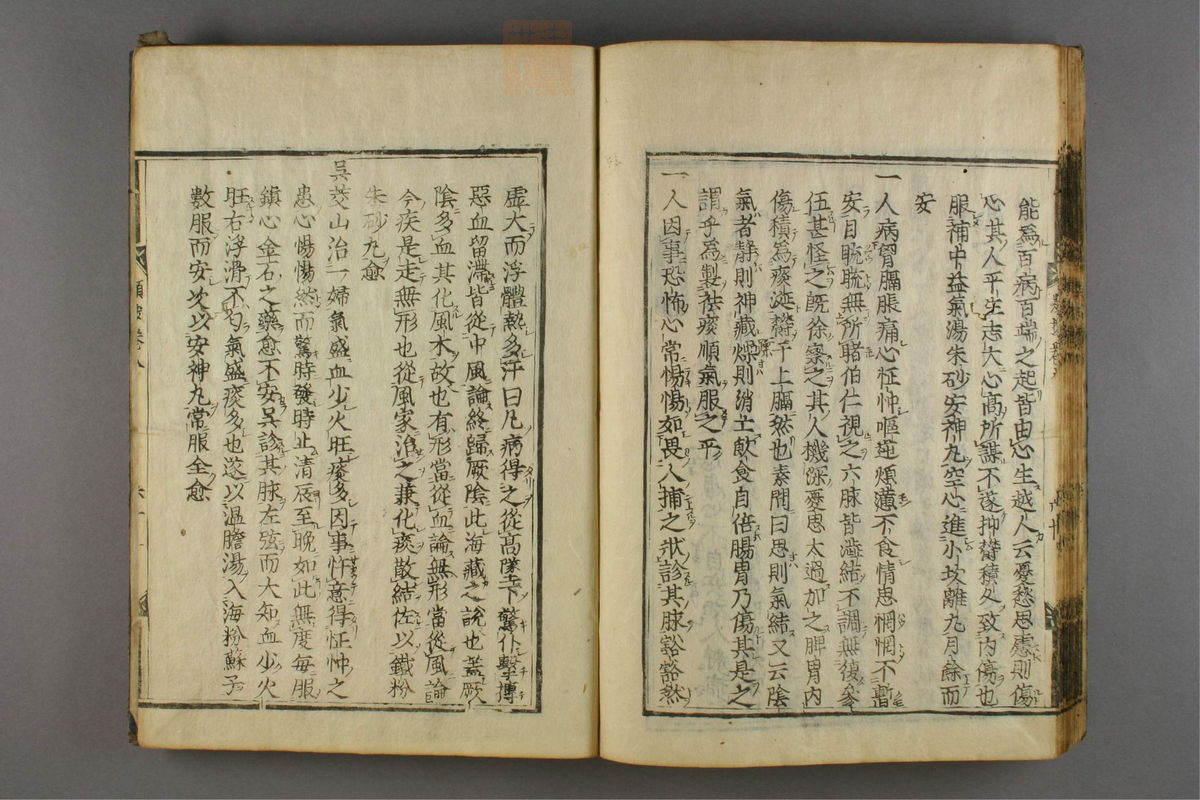 能為百病百端之起皆由心生越人云憂愁思慮則傷
心其人平生志大心高所謀不遂抑欝積久致内傷也
服補中益氣湯朱砂安神丸空心進小坎離丸月餘而
安
一人病胷膈脹痛心怔忡嘔逆煩懣不食情思惘惘不暫
安目䀮䀮無所睹伯仁視之六脉皆澁結不調無復參
伍甚怪之既徐察之其人機深憂思太過加之脾胃内
傷積為痰涎欝于上膈然也素問曰思則氣結又云陰
氣者静則神藏燥則消亡飲食自倍腸胃乃傷其是之
謂乎為製祛痰順氣服之平
一人因事恐怖心常惕惕如畏人捕之狀診其脉豁豁然
虚大而浮體熱多汗曰凡病得之從高墜下驚仆擊搏
惡血留滯皆從中風論終歸厥陰此海藏之說也蓋厥
陰多血其化風木故也有形當從血論無形當從風論
今疾是走無形也從風家治之兼化痰散結佐以鐵粉
朱砂丸愈
吳茭山治一婦氣盛血少火旺痰多因事忤意得怔忡之
患心惕惕然而驚時發時止清辰至晚如此無度每服
鎮心金石之藥愈不安吳診其脉左弦而大知血少火
旺右浮滑不勻氣盛痰多也遂以温膽湯入海粉蘇子
數服而安次以安神丸常服全愈